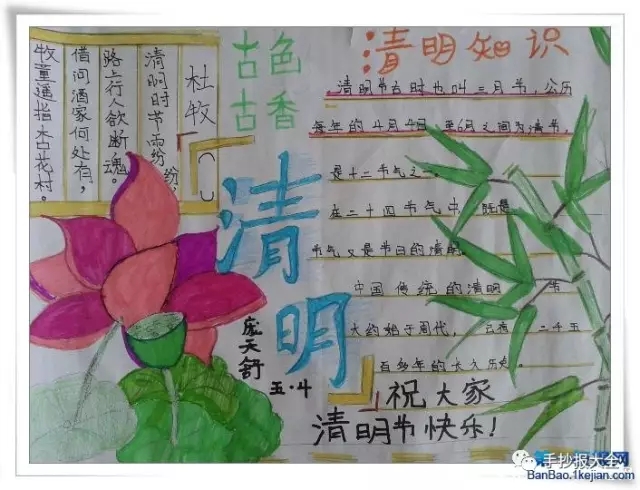 古色
古香
杜牧
清明时节雨纷纷，
路上行人欲断魂。
借问酒家何处有，
牧童遥指杏花村。
清明
庞天舒
五·四
清明知识
清明节古时也叫三月节，公历
每年的4月4日，至6月之间为清节，
是十二节气之一。
在二十四节气中，既是
节气又是节日的清明。
中国传统的清明 节
大约始于周代，云有二千五
百多年的长久历史。
祝大家
清明节快乐！
手抄报大全
BanBao.1kejian.com